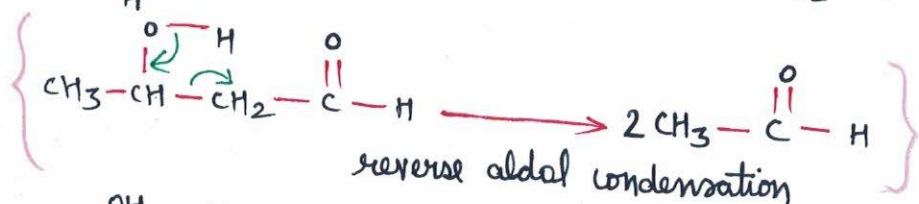 O—H
O
||
CH3—CH—CH2—C—H
O
||
2 CH3—C—H
reverse aldol condensation
OH